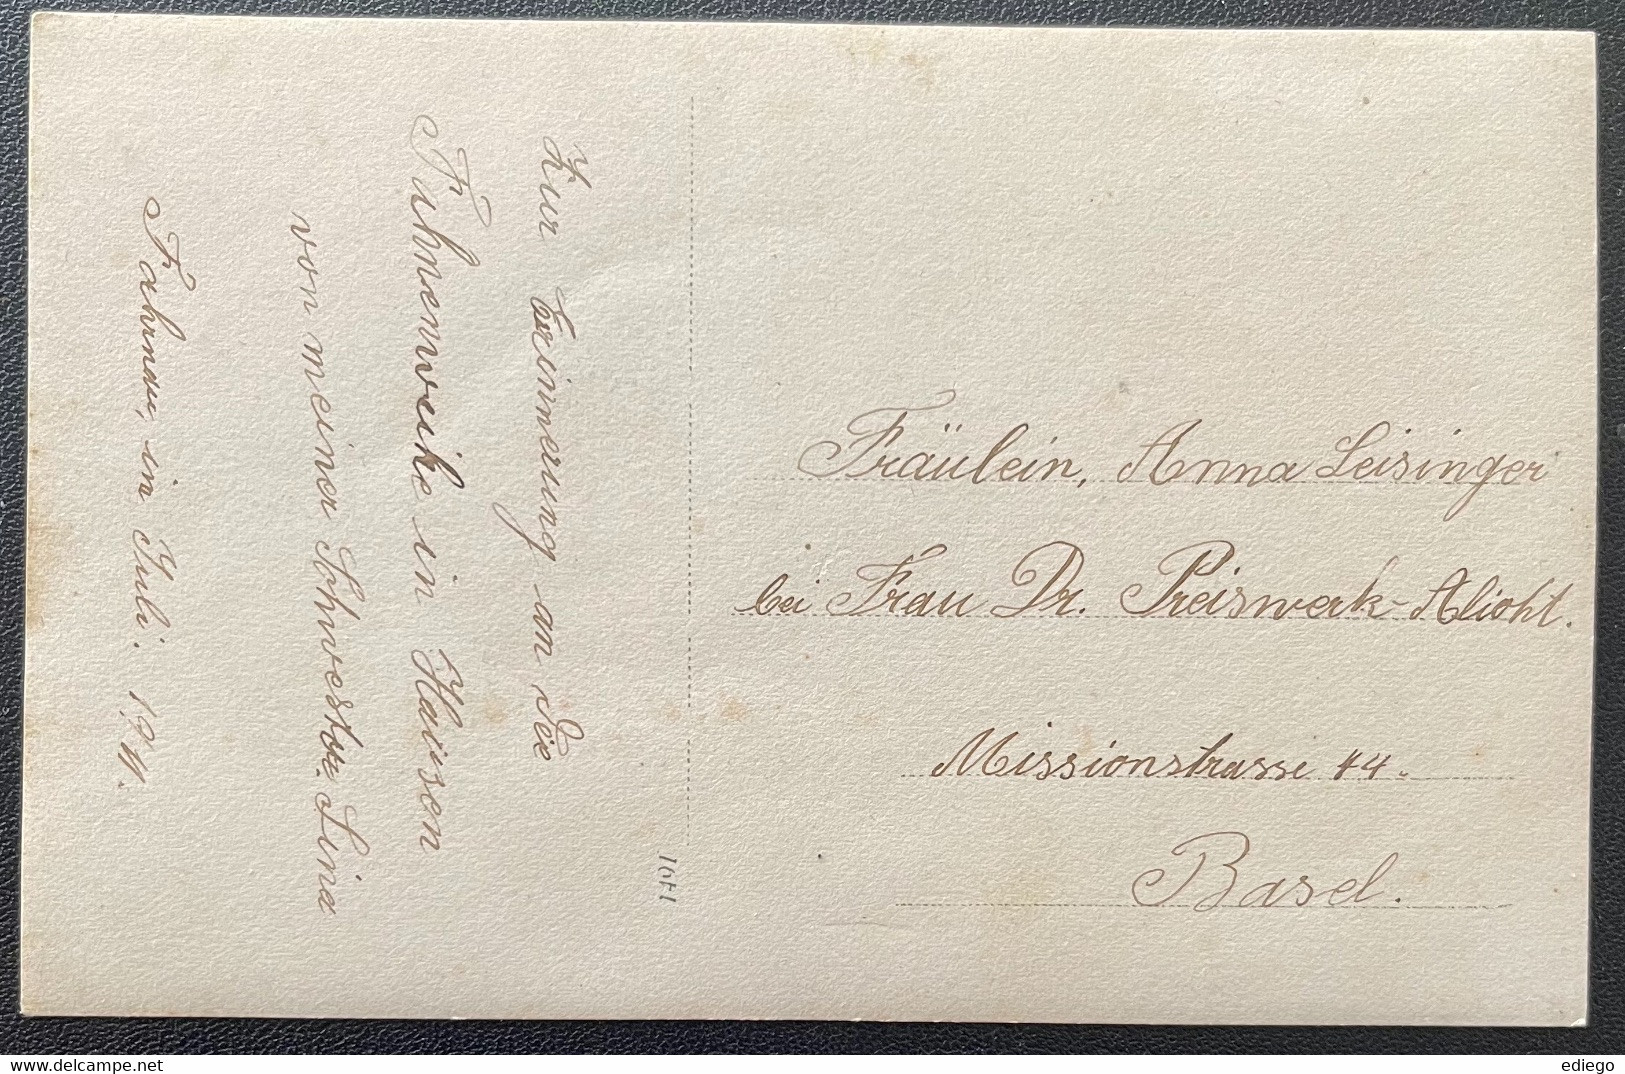 Zur Erinnerung an die
Fahnenweihe in Hausen
von meiner Schwester Lina
Fahrnau, in Juli. 1911.
1491
Fräulein, Anna Leisinger
bei Frau Dr. Preiswerk-Alioht.
Missionstrasse 44.
Basel.
ediego